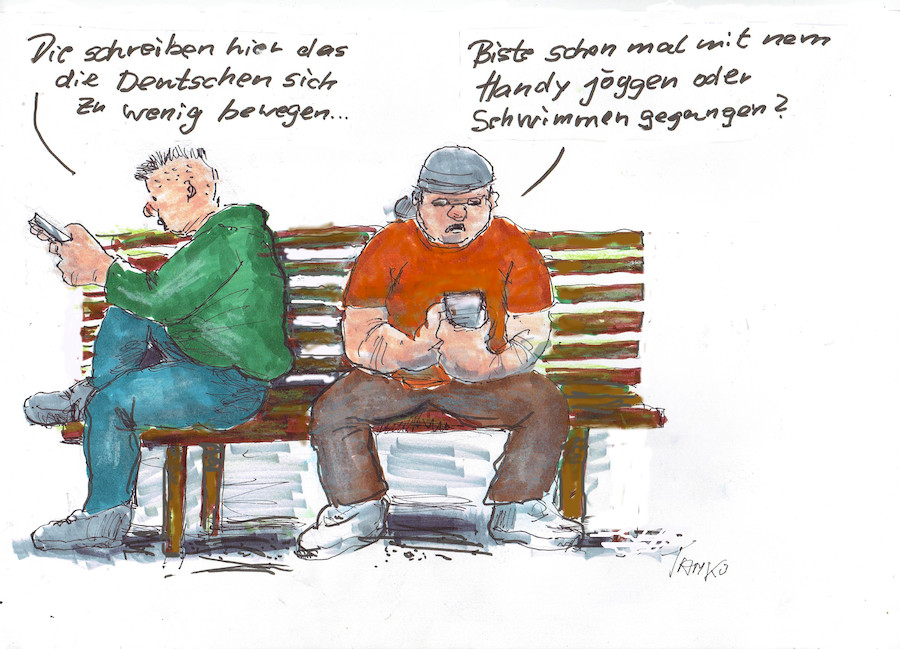 Die schreiben hier das
die Deutschen sich
zu wenig bewegen...
Biste schon mal mit nem
Handy joggen oder
Schwimmen gegangen?